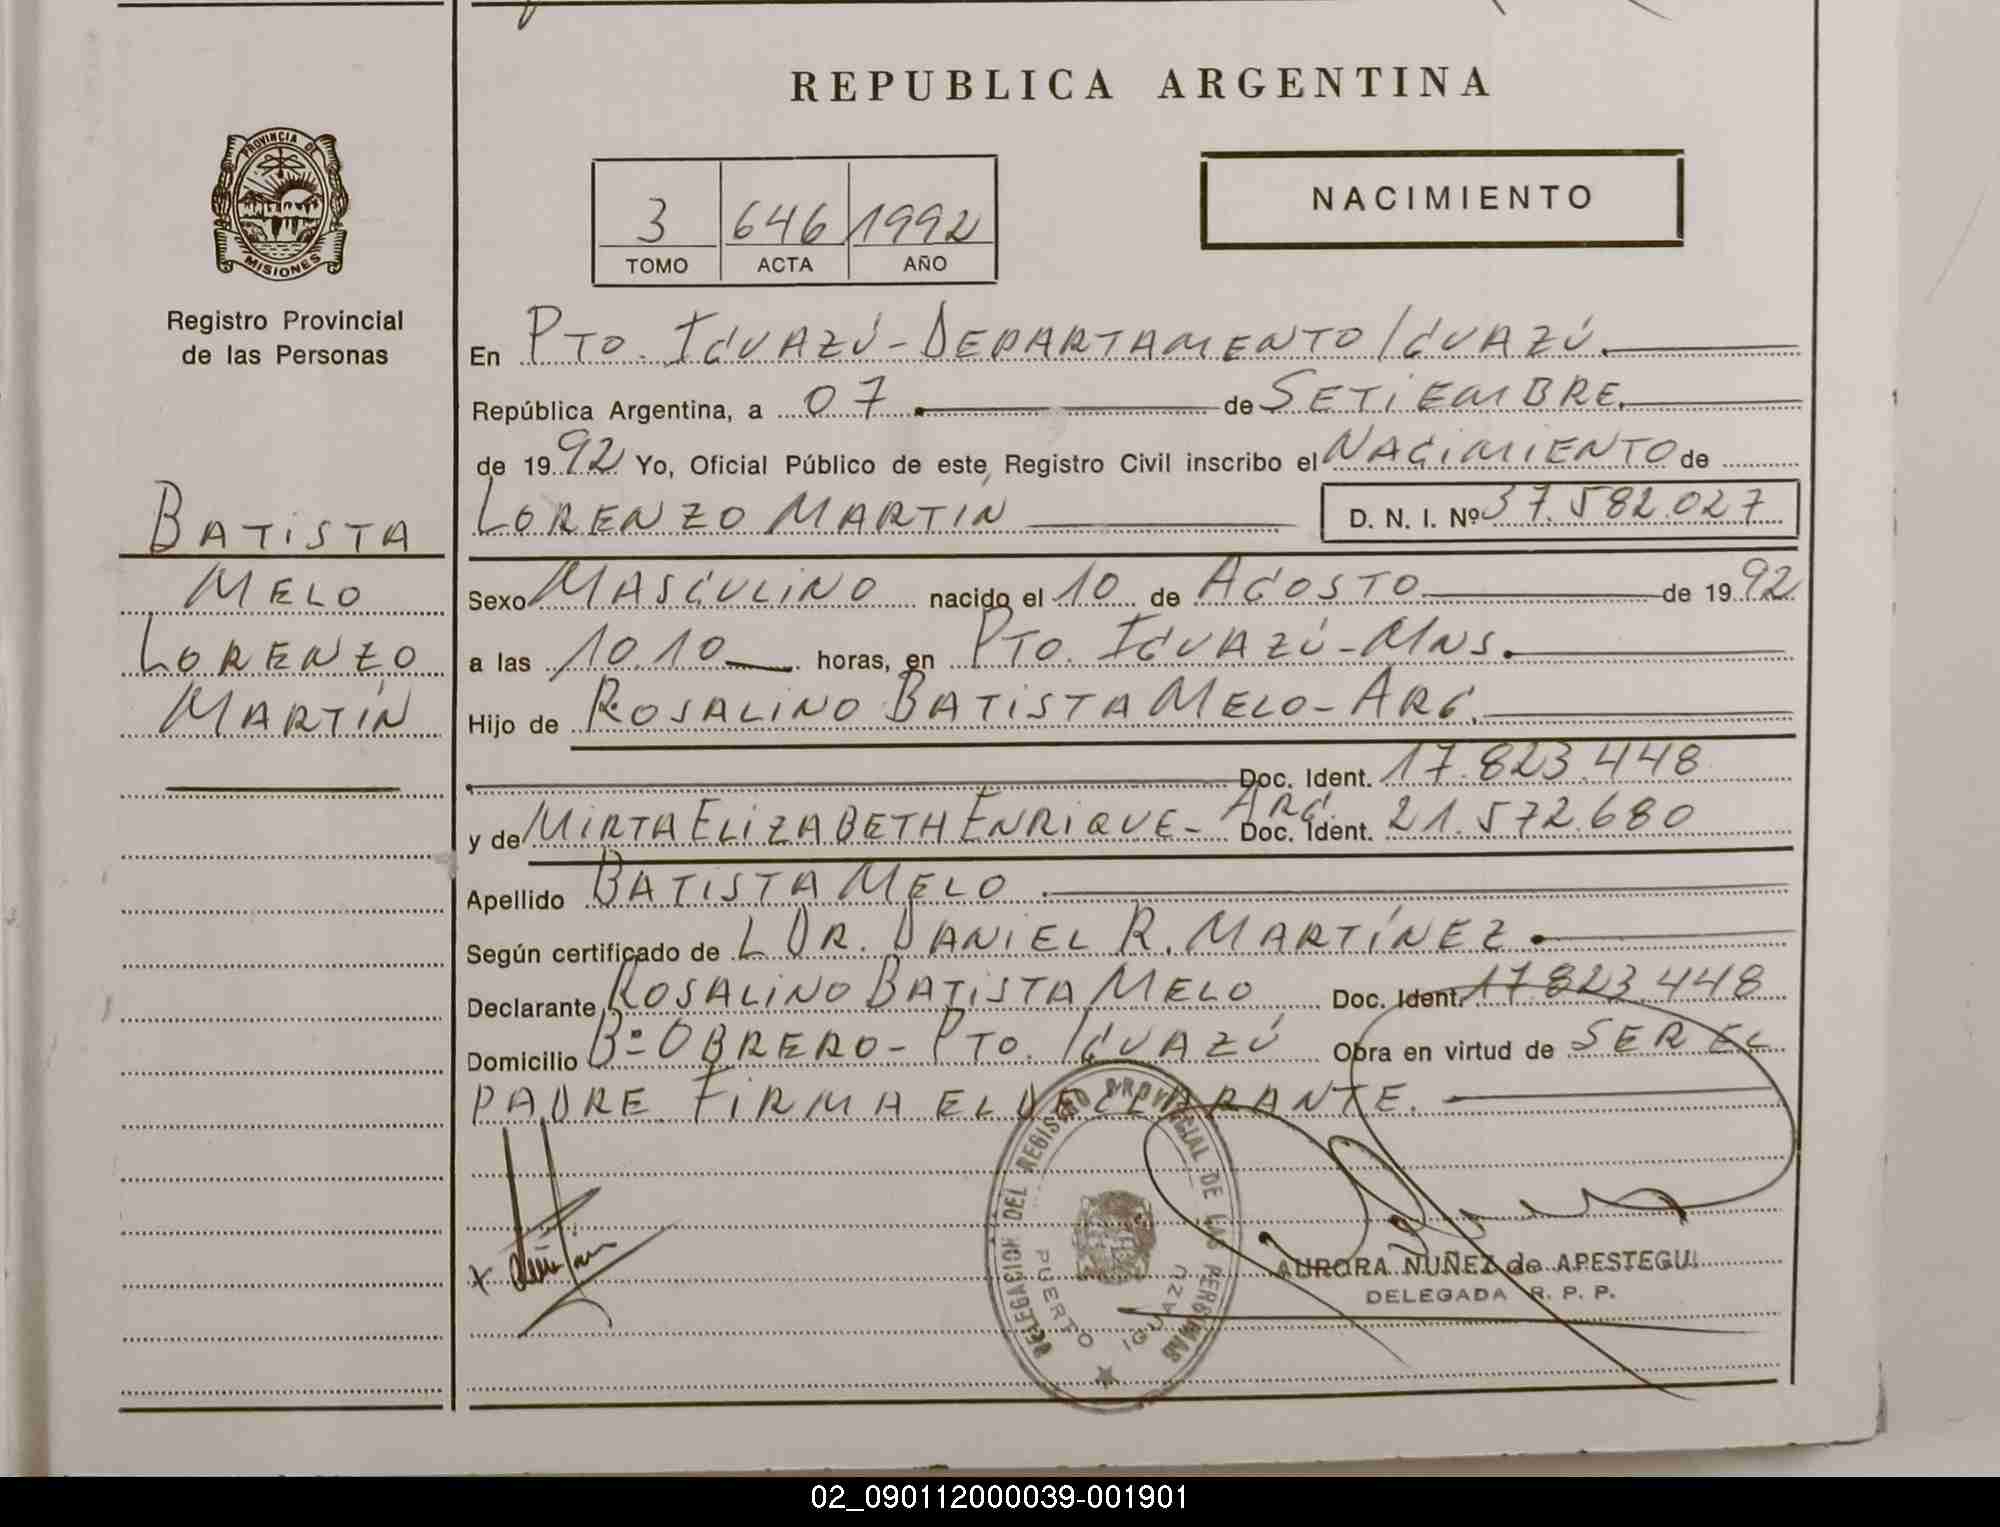 REPUBLICA ARGENTINA
PROVINCIA DE
MISIONES
Registro Provincial
de las Personas
3 646 1992
TOMO ACTA AÑO
NACIMIENTO
BATISTA
MELO
LORENZO
MARTÍN
En PTO. IGUAZÚ - DEPARTAMENTO IGUAZÚ.
República Argentina, a 07 de SETIEMBRE.
de 1992 Yo, Oficial Público de este Registro Civil inscribo el NACIMIENTO de
LORENZO MARTÍN D. N. I. Nº 37.582.027
Sexo MASCULINO nacido el 10 de AGOSTO de 1992
a las 10.10 horas, en PTO. IGUAZÚ - MNS.
Hijo de ROSALINO BATISTA MELO - ARG.
Doc. Ident. 17.823.448
y de MIRTA ELIZABETH ENRIQUE - ARG. Doc. Ident. 21.572.680
Apellido BATISTA MELO
Según certificado de L DR. DANIEL R. MARTÍNEZ
Declarante ROSALINO BATISTA MELO Doc. Ident. 17.823.448
Domicilio Bº OBRERO - PTO. IGUAZÚ Obra en virtud de SER EL
PADRE. FIRMA EL DECLARANTE.
DELEGACION DEL REGISTRO PROVINCIAL DE LAS PERSONAS
PUERTO IGUAZU
AURORA NUÑEZ de APESTEGUI
DELEGADA R. P. P.
02_090112000039-001901